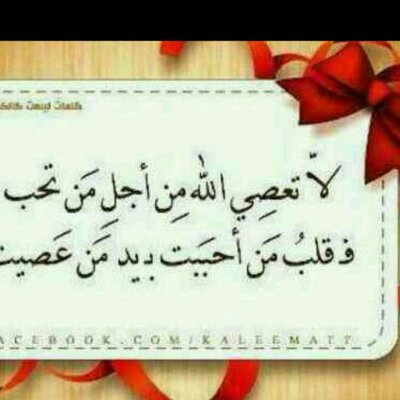 كلمات ليست كالكلمات
لاّ تعصِي الله مِن أجلِ مَن تحب
فـ قلبُ مَن أحبَبت بـيد مَن عَصيت
ACEBOOK.COM/KALEEMATT